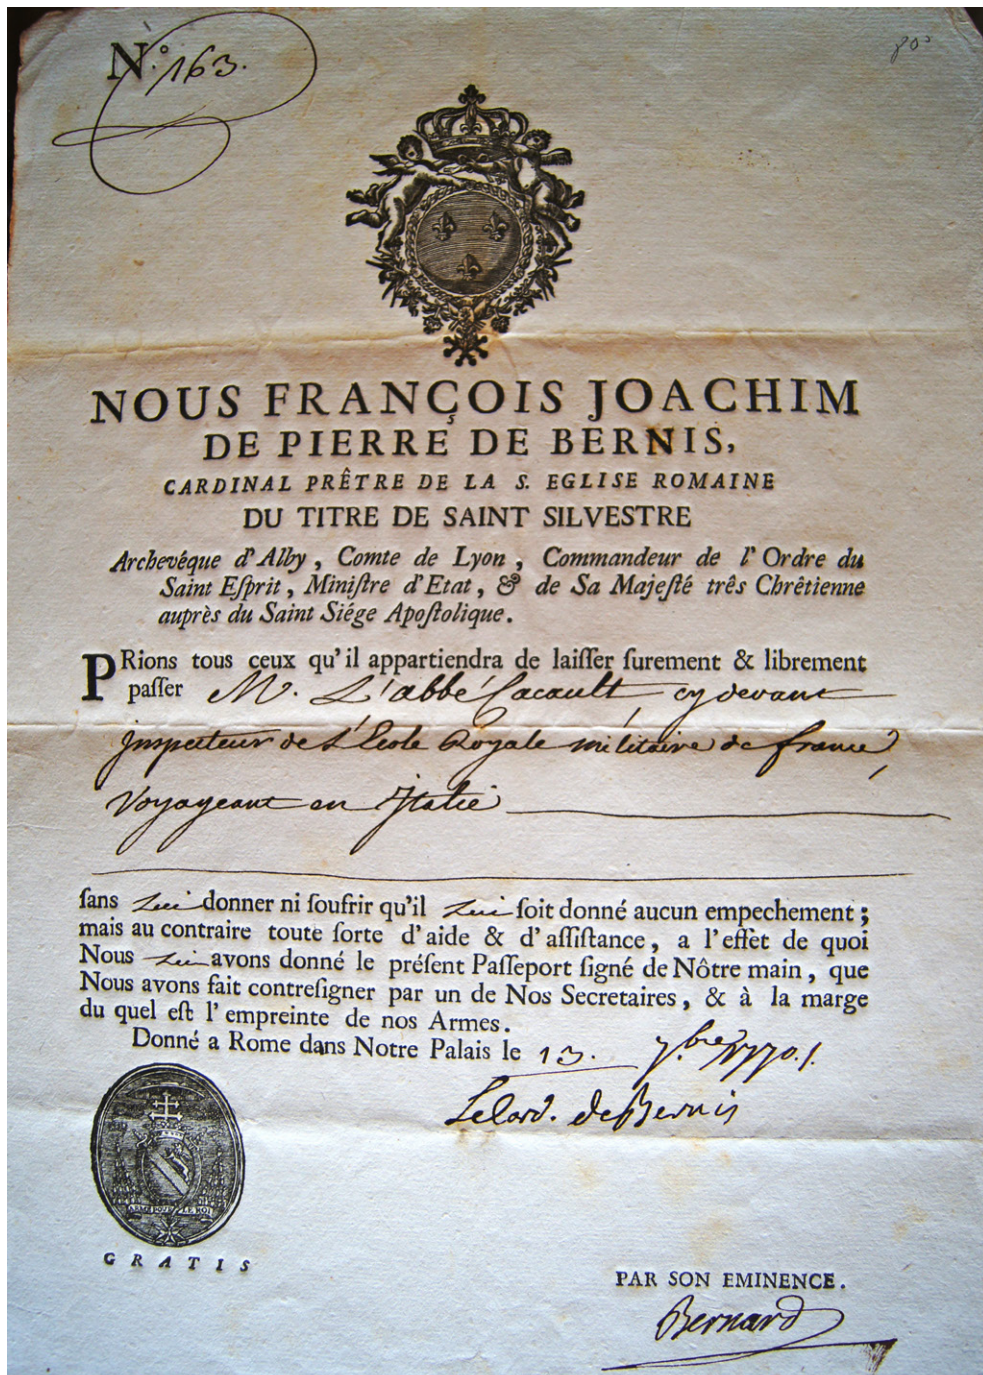 N.° 163.
NOUS FRANÇOIS JOACHIM
DE PIERRE DE BERNIS,
CARDINAL PRÊTRE DE LA S. EGLISE ROMAINE
DU TITRE DE SAINT SILVESTRE
Archevéque d'Alby, Comte de Lyon, Commandeur de l'Ordre du
Saint Eſprit, Miniſtre d'Etat, & de Sa Majeſté três Chrêtienne
auprès du Saint Siége Apoſtolique.
PRions tous ceux qu'il appartiendra de laiſſer ſurement & librement
paſſer M. L'abbé Cacault, cy devant
inspecteur de L'Ecole Royale militaire de france,
Voyageant en Italie
ſans lui donner ni ſoufrir qu'il lui ſoit donné aucun empechement;
mais au contraire toute ſorte d'aide & d'aſſiſtance, a l'effèt de quoi
Nous lui avons donné le préſent Paſſeport ſigné de Nôtre main, que
Nous avons fait contreſigner par un de Nos Secretaires, & à la marge
du quel eſt l'empreinte de nos Armes.
Donné a Rome dans Notre Palais le 13. 7.bre 1770.
Le Card. de Bernis
ARMÉ POUR LE ROI
GRATIS
PAR SON EMINENCE.
Bernard